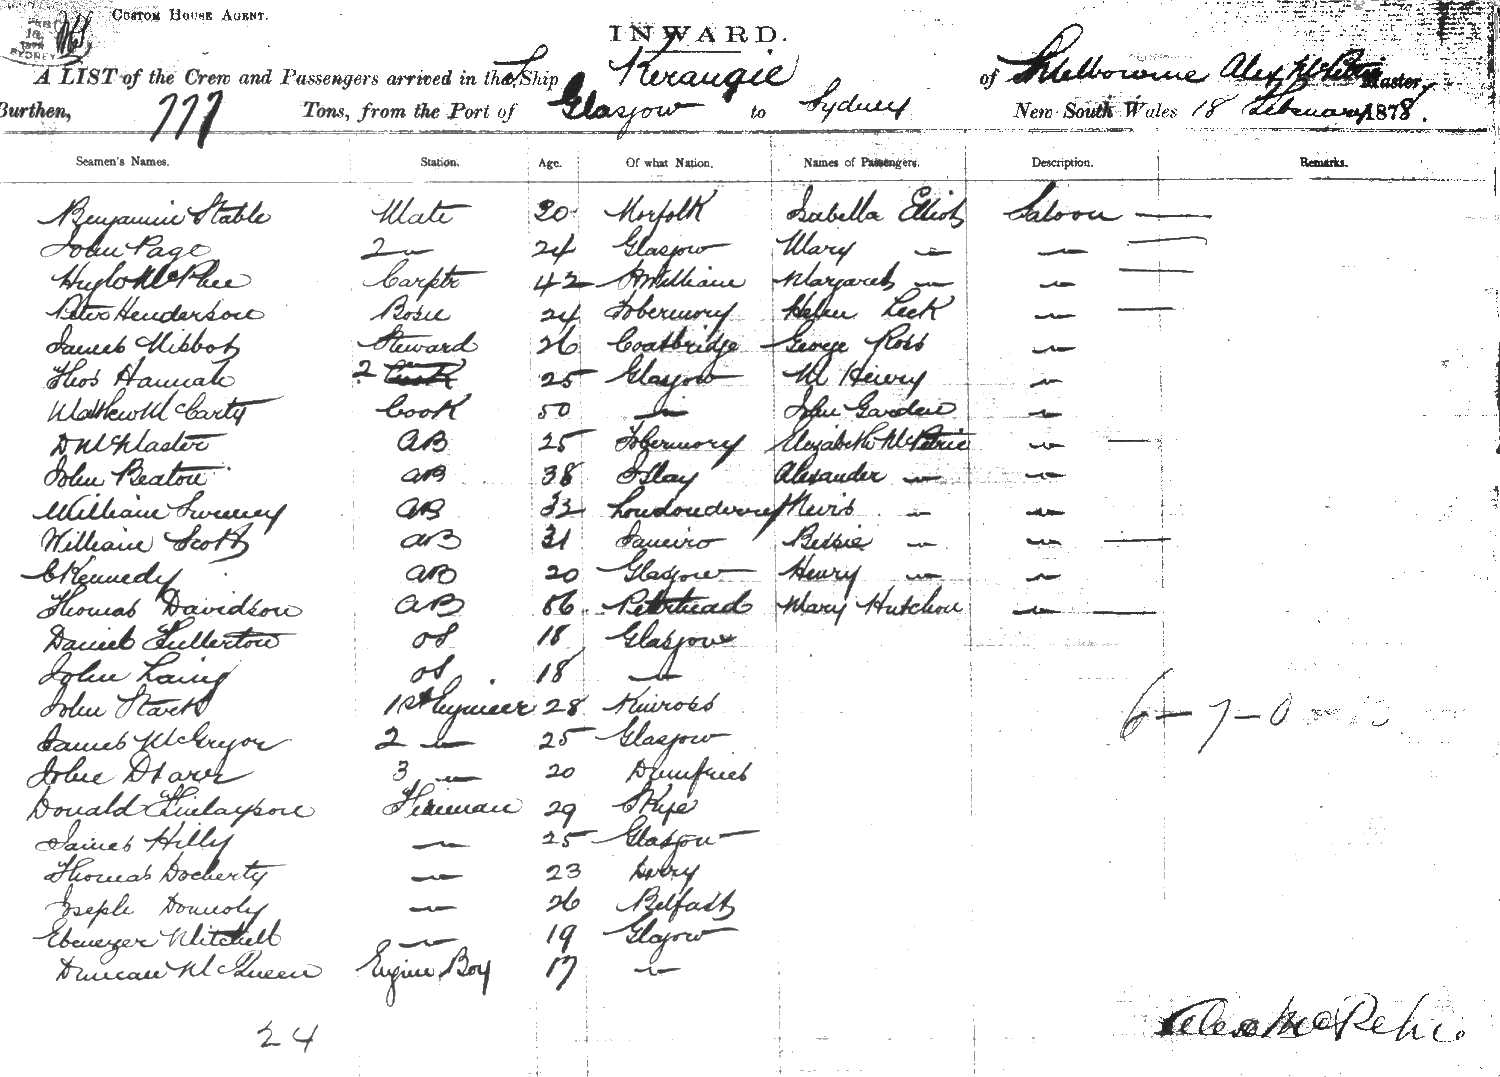 CUSTOM HOUSE AGENT.
SYDNEY
INWARD.
A LIST of the Crew and Passengers arrived in the S. Ship Kerangie of Melbourne Alex McPetrie Master,
Burthen, 777 Tons, from the Port of Glasgow to Sydney New South Wales 18 February 1878.
Seamen's Names. Station. Age. Of what Nation. Names of Passengers. Description. Remarks.
Benjamin Stable Mate 30 Norfolk Isabella Elliot Saloon —
John Page 2 — 24 Glasgow Mary — — —
Hugh McPhee Carptr 42 Margaret — — —
Peter Henderson Bosn 24 Tobermory Helen Leck — —
James Steward 26 Coatbridge George Ross —
Thos Hannah 2 Cook 25 Glasgow M Henry —
Mathew McCarty Cook 50 — John Garden —
D McMaster AB 25 Tobermory Elizabeth McPetrie — —
John Beaton AB 38 Islay Alexander — —
William Sweeney AB 32 Londonderry — —
William Scott AB 31 Janeiro Bessie — — —
C Kennedy AB 20 Glasgow Henry — —
Thomas Davidson AB 56 Peterhead Mary Hutchon — —
Daniel Fullerton OS 18 Glasgow
John Laing OS 18 —
John Stark 1st Engineer 28 Kinross
6 – 7 – 0
James McGregor 2 — 25 Glasgow
John 3 — 20 Dumfries
Donald Finlayson Fireman 29 Skye
James Hilly — 25 Glasgow
Thomas Docherty — 23 Derry
Joseph Donnoly — 26 Belfast
Ebenezer Mitchell — 19 Glasgow
Duncan McQueen Engine Boy 17 —
24
Alex McPetrie